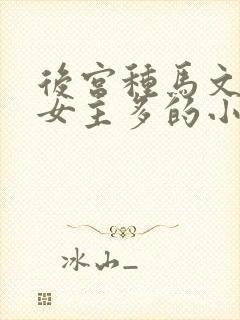 後宮種馬文
女主多的小
冰山_